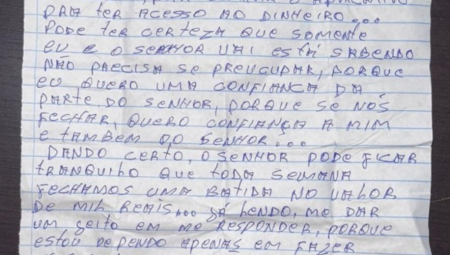 PRA TER ACESSO AO DINHEIRO...
PODE TER CERTEZA QUE SOMENTE
EU E O SENHOR VAI ESTÁ SABENDO
NÃO PRECISA SE PREUCUPAR, PORQUE
EU QUERO UMA CONFIANÇA DA
PARTE DO SENHOR, PORQUE SE NÓS
FECHAR, QUERO CONFIANÇA A MIM
E TAMBEM DO SENHOR...
DANDO CERTO, O SENHOR PODE FICAR
TRANQUILO QUE TODA SEMANA
FECHAMOS UMA BATIDA NO VALOR
DE MIL REAIS... LENDO, ME DAR
UM GEITO EM ME RESPONDER, PORQUE
ESTOU DEPENDO APENAS EM FAZER